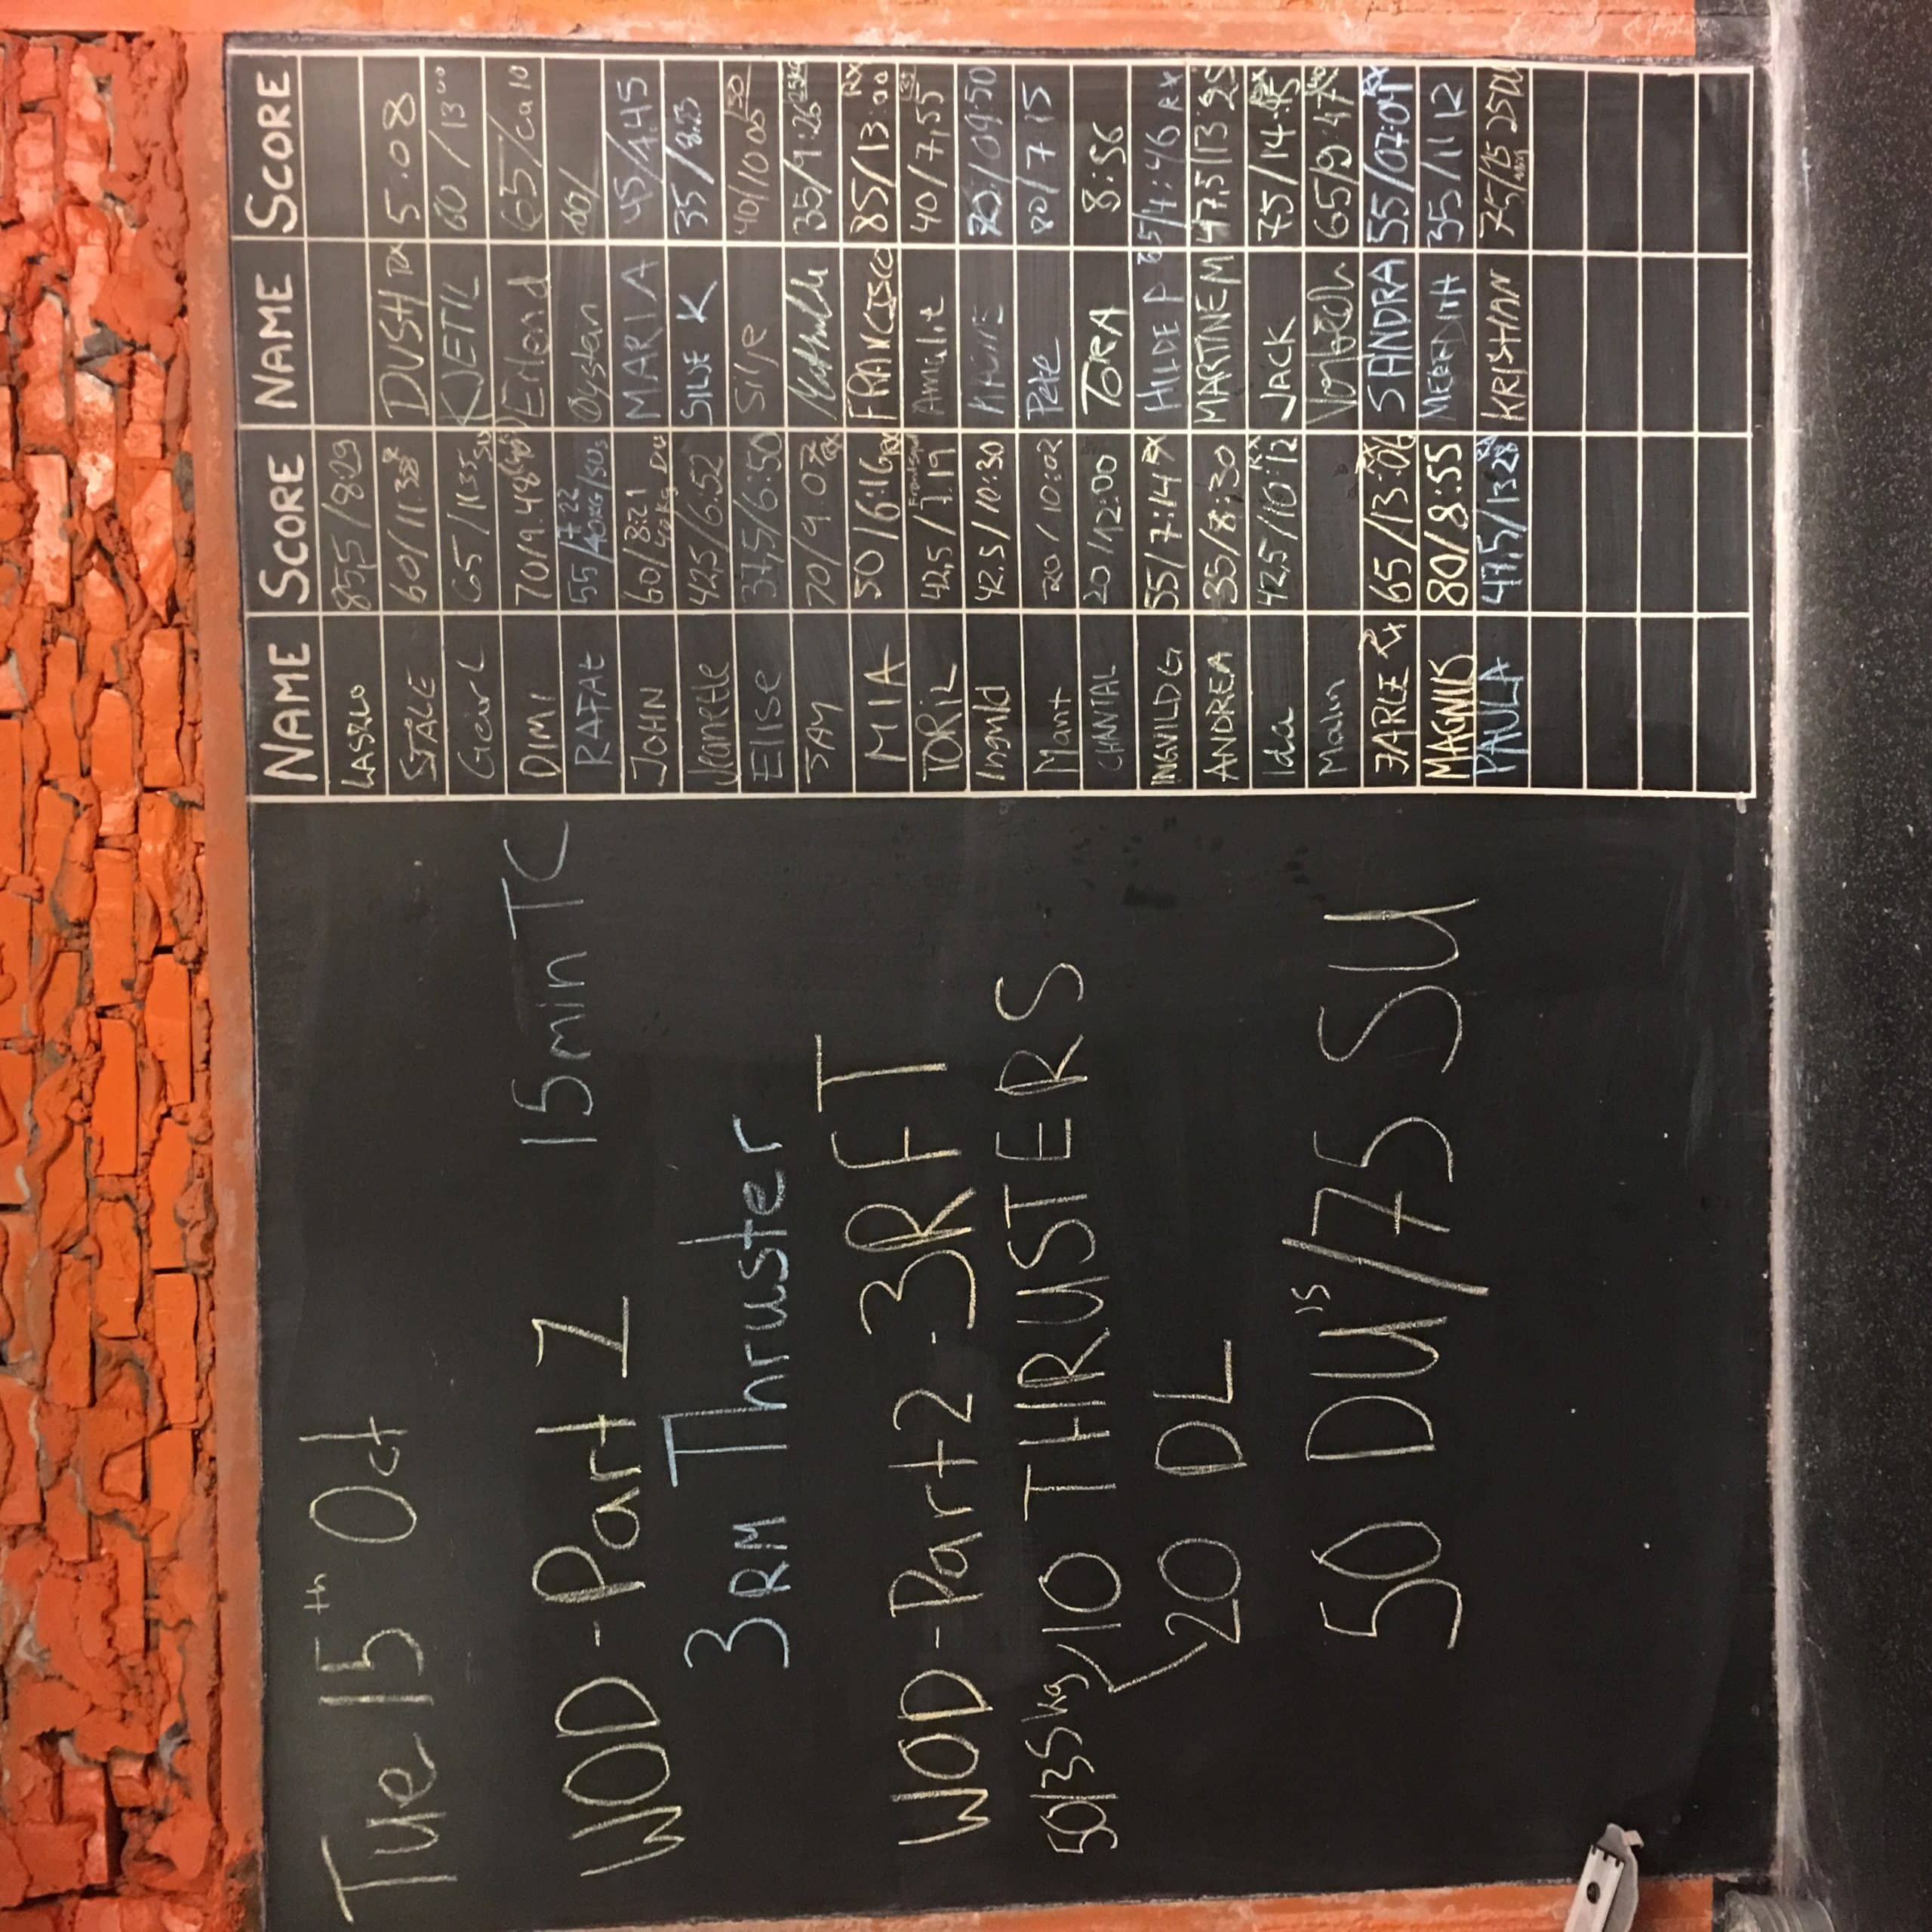 Tue 15th Oct
WOD-Part 1
15min TC
3RM Thruster
WOD-Part 2 - 3RFT
50/35kg 10 THRUSTERS
20 DL
50 DU's/75 SU
NAME SCORE NAME SCORE
LASZLO 85,5/8:29
STALE 60/11:38 DUSH RX 5:08
Geir L 65/11:35 SU KJETIL 60/13:00
DIMI 70/9:48 Erlend 65/Cal 10
RAFAt 55/7:22 40KG/50s Øystein
JOHN 60/8:21 40kg DU MARIA 45/4:45
Jeanette 42,5/6:52 SILJE K 35/8:33
Elise 37,5/6:50 Silje 40/10:05
JAY 70/9:07 RX Mathilde 35/9:26 25kg
MIA 50/6:16 RX FRANCISCO 85/13:00 RX
TORiL 42,5/7:19 Frontsquat Amalie 40/7,55
Ingvild 42.5/10:30 70/09:50
Marit 20/10:02 Pete 80/7:15
CHANTAL 20/12:00 TORA 8:56
INGVILD G 55/7:14 RX HILDE P 65/4:46 RX
ANDREA 35/8:30 MARTINE M 47,5/13:25
Ida 42,5/10:12 RX JACK 75/14:45 RX
Malin 65/9:47
JARLE Rx 65/13:06 SANDRA 55/07:04 RX
MAGNUS 80/8:55 MEREDITH 35/11:12
PAULA 47,5/13:28 RX KRISHAN 75/15